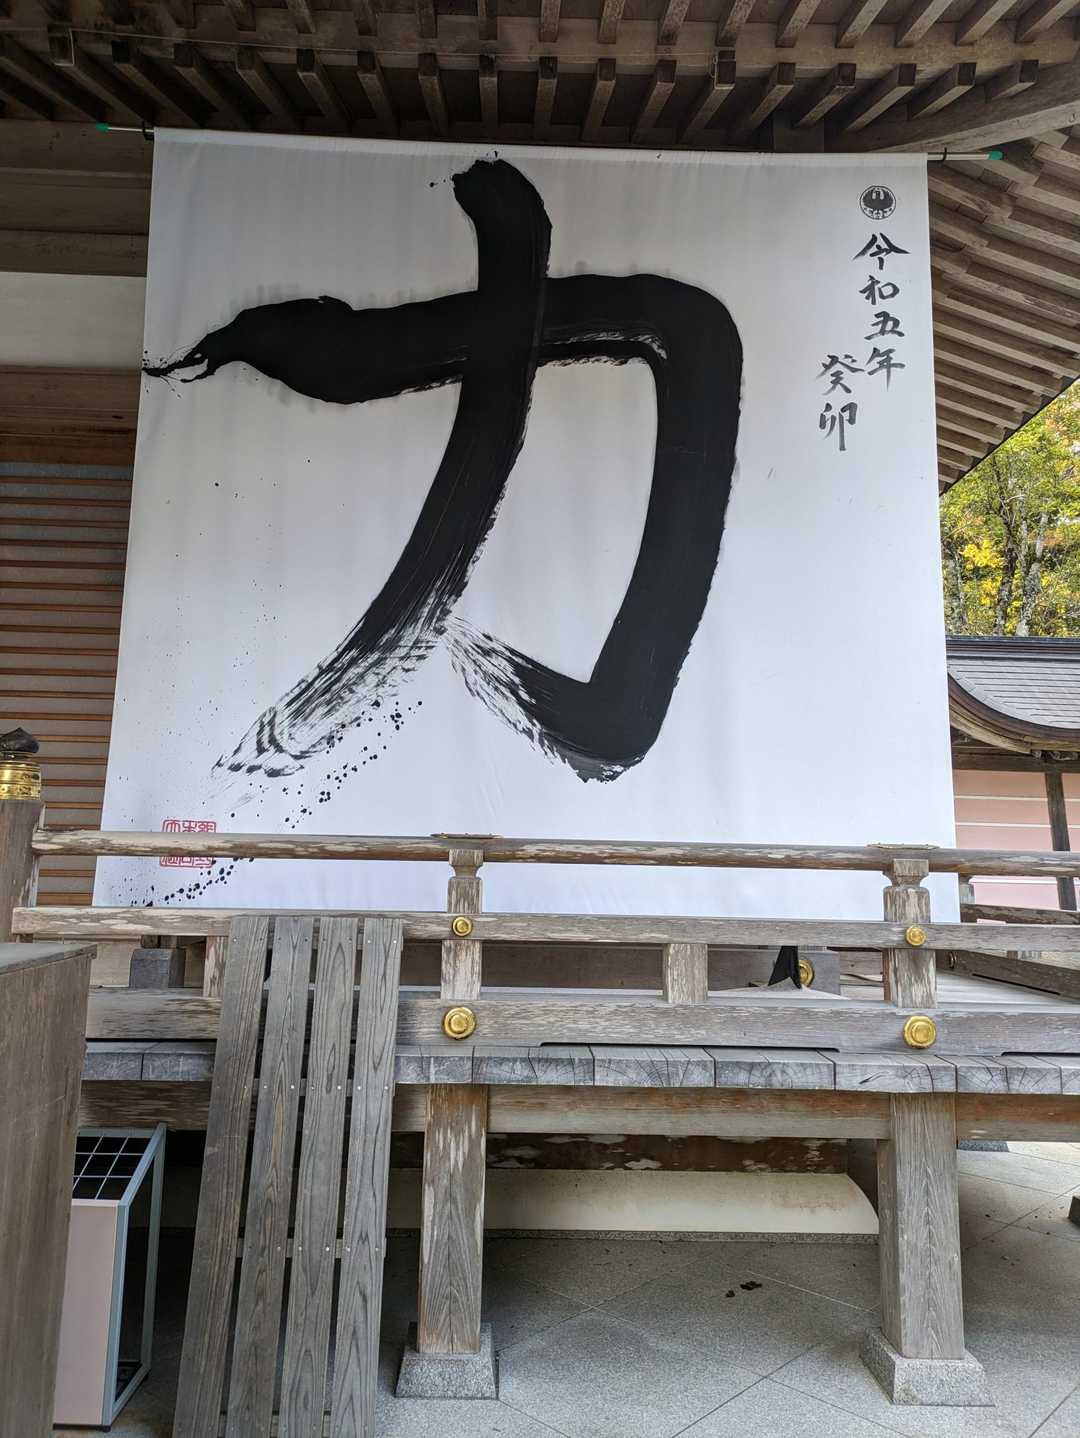 令和五年
癸卯
力